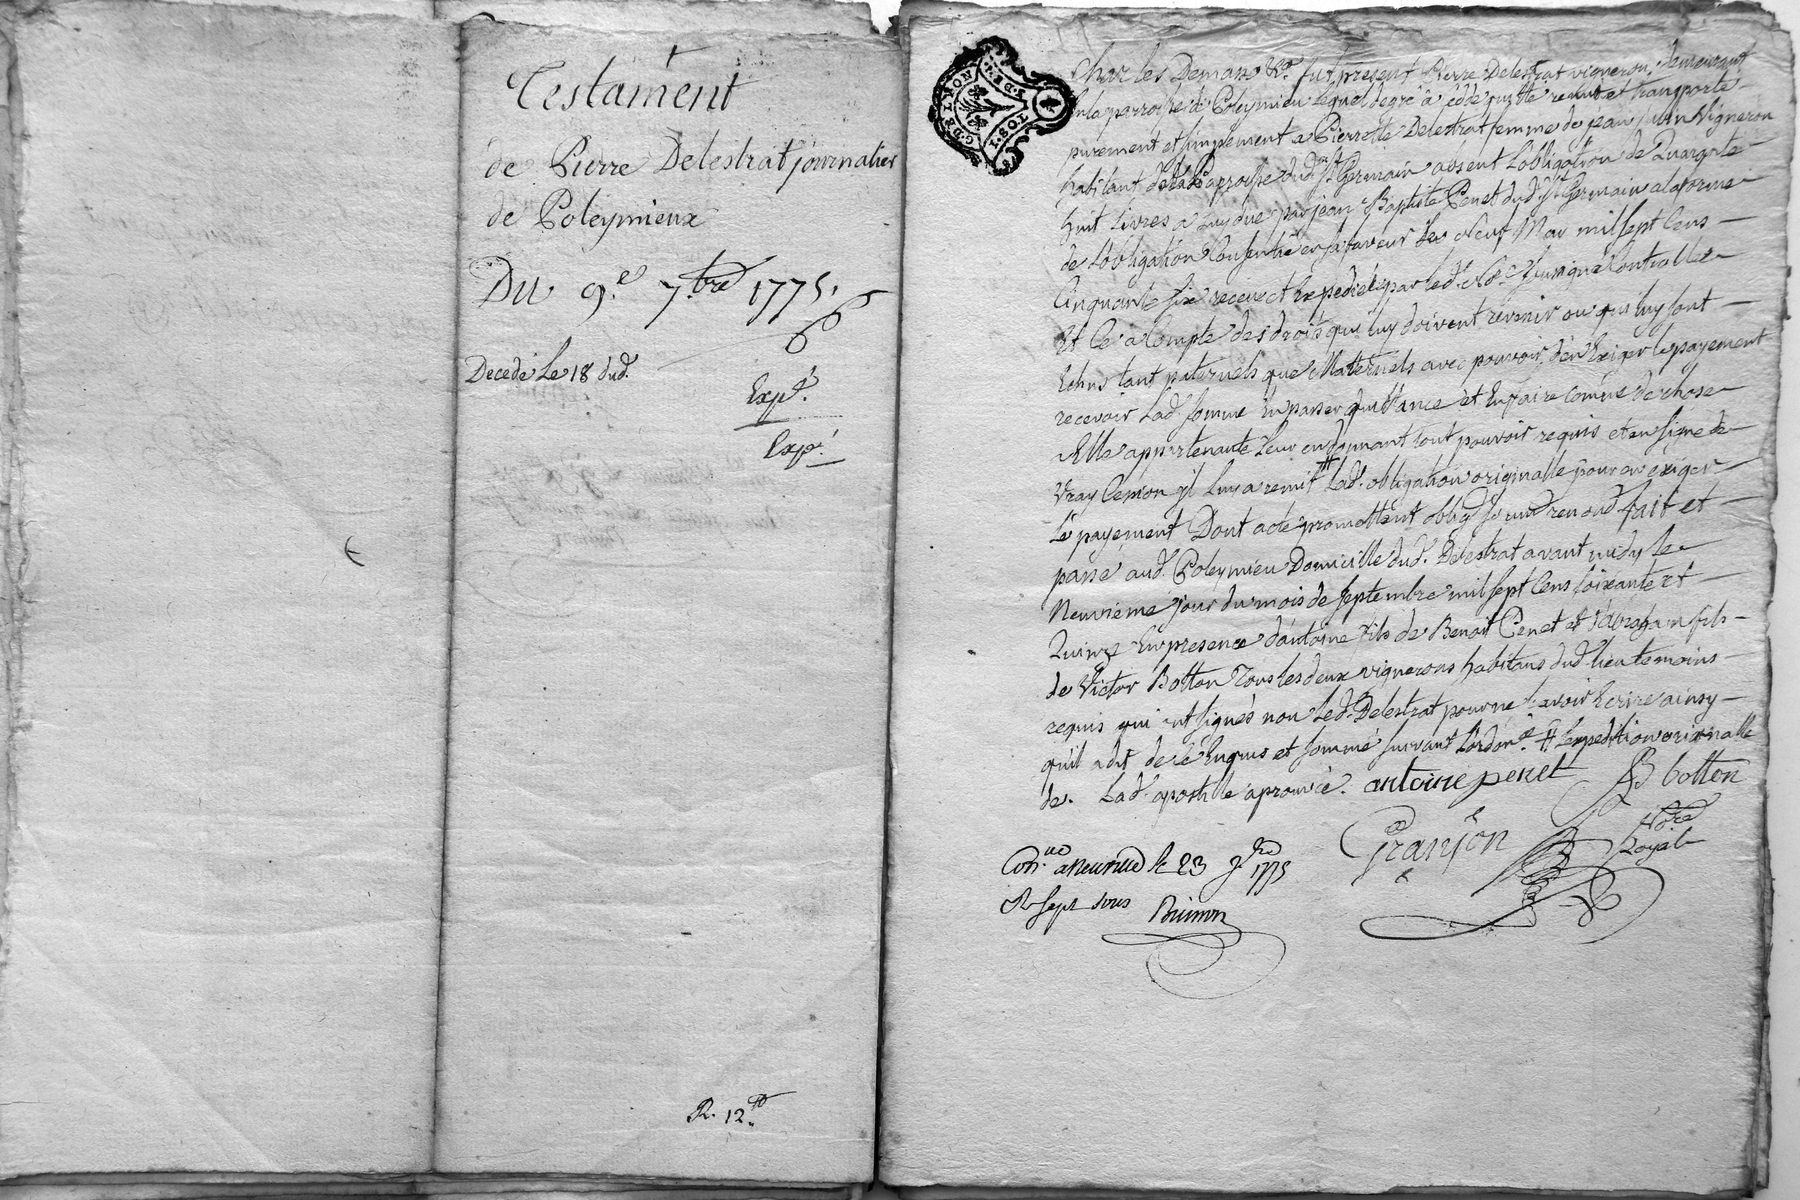 Testament
de Pierre Delestrat journalier
de Poleymieux
Du 9.e 7.bre 1775.
6
Decedé Le 18 dud.
Exp.é
Exp.é
R. 12
G. DE LYON
1 SOL
Par devant fut present Pierre Delestrat vigneron, demeurant
en la parroisse de Poleymieu lequel de gré a cédé quitté remis et transporté
purement et simplement a Pierrette Delestrat femme de Vigneron
habitant de la parroisse dud. St Germain absent L'obligation de Quarante
huit Livres a Luy due par jean Baptiste Penet dud. St Germain a la forme
de L'obligation Consentie en sa faveur Le Neuf May mil sept Cens
Cinquante six recue et Expediée par led. No.e soussigné Controllée
Et Ce a Compte des droits qui luy doivent revenir ou qui luy sont
Echus tant paternels que Maternels avec pouvoir d'en Exiger le payement
recevoir Lad. somme En passer quittance et En faire comme de chose
a Elle appartenante Leur en donnant tout pouvoir requis et en signe de
vray Cession il Luy a remis # Lad. obligation originalle pour en exiger
Le payement Dont acte promettent oblig. fait et
passé aud. Poleymieu Domicille dud. Delestrat avant midy Le
Neuvieme jour du mois de septembre mil sept Cens soixante et
Quinze En presence d'antoine fils de Benoit Penet et d'abraham fils
de Victor Botton Tous les deux vignerons habitans dud. lieu temoins
requis qui ont signés non Led. Delestrat pour ne scavoir Ecrire ainsy
qu'il a dit de ce Enquis et sommé suivant L'ordon.e # L'expedition originalle
de. Lad. apostille aprouvée. antoine penet AB botton
Granjon Nore
Royal
Con.lé a Neuville le 23 7bre 1775
R. sept sous